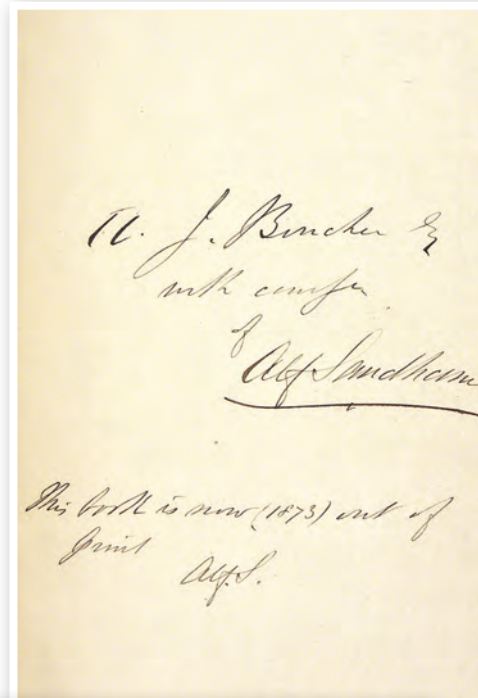 To. J. Boucher Esq
with comps
of
Alf Sandham
This book is now (1873) out of
print
Alf. S.